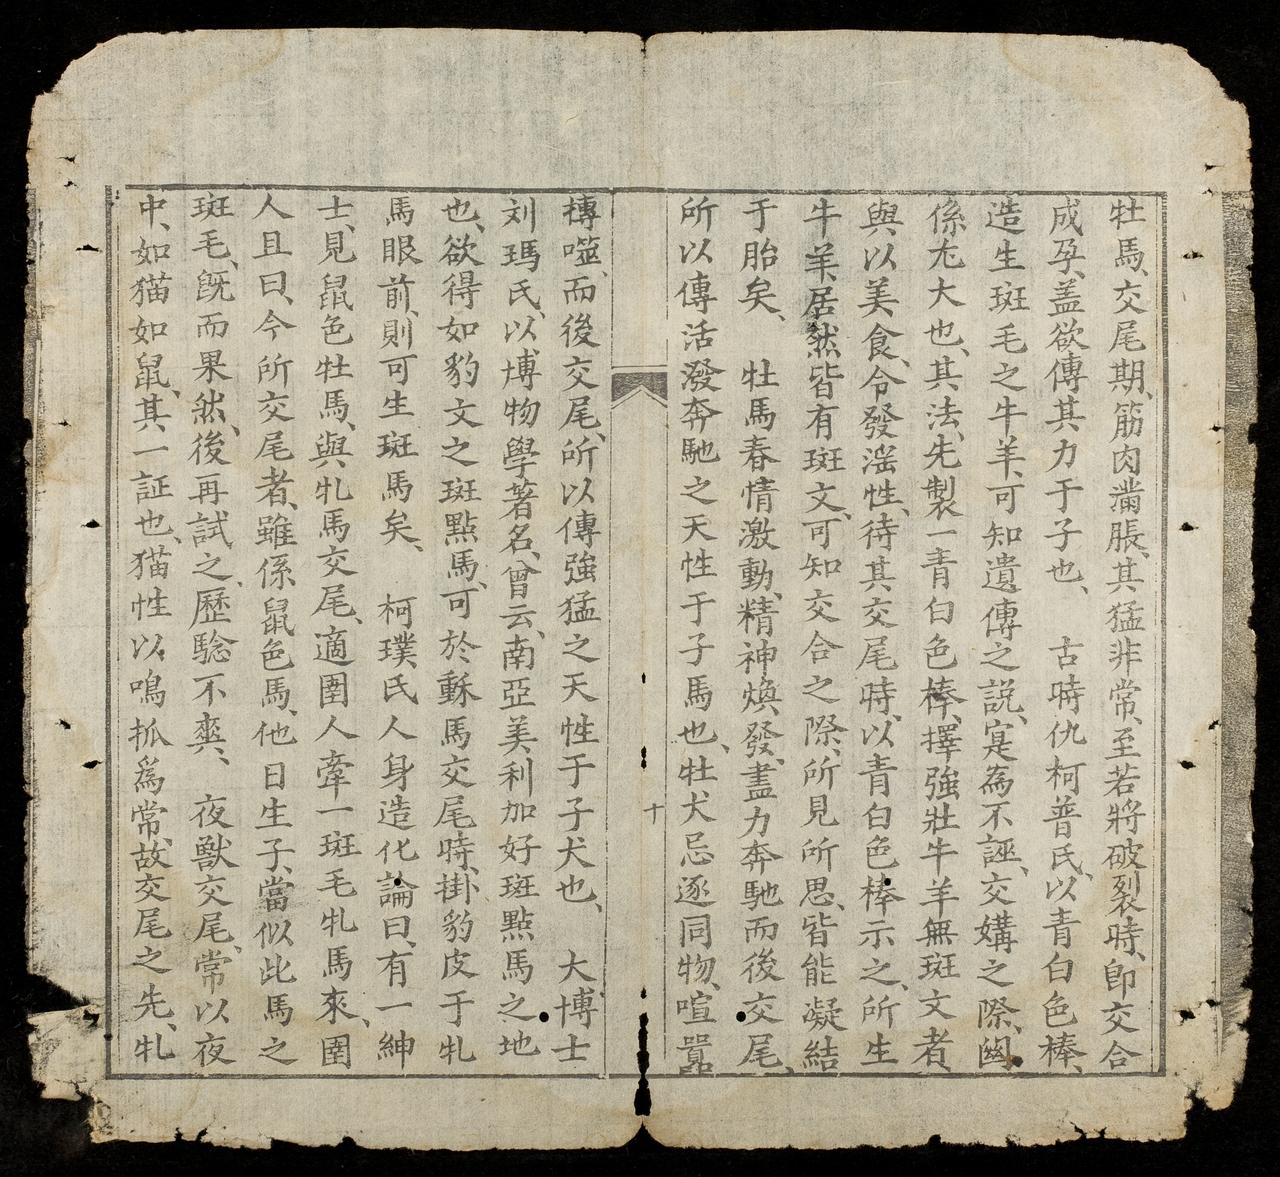 牡馬、交尾期、筋肉滿脹、其猛非常、至若將破裂時、卽交合
成孕、盖欲傳其力于子也、　古時仇柯普氏、以青白色棒、
造生斑毛之牛羊、可知遺傳之説、寔為不誣、交媾之際、
係尤大也、其法、先製一青白色棒、擇強壯牛羊無斑文者、
與以美食、令發滛性、待其交尾時、以青白色棒示之、所生
牛羊、居然皆有斑文、可知交合之際、所見所思、皆能凝結
于胎矣、　牡馬春情激動、精神煥發、盡力奔馳而後交尾、
所以傳活潑奔馳之天性于子馬也、牡犬忌逐同物、喧囂
十
摶噬、而後交尾、所以傳強猛之天性于子犬也、　大博士
刘瑪氏、以博物學著名、曾云、南亞美利加好斑㸃馬之地
也、欲得如豹文之斑㸃馬、可於鿋馬交尾時、掛豹皮于牝
馬眼前、則可生斑馬矣、　柯璞氏人身造化論曰、有一紳
士、見鼠色牡馬、與牝馬交尾、適圉人牽一斑毛牝馬來、圉
人且曰、今所交尾者、雖係鼠色馬、他日生子、當似此馬之
斑毛、旣而果然、後再試之、歷驗不爽、　夜獸交尾、常以夜
中、如猫如鼠、其一証也、猫性以鳴抓爲常、故交尾之先、牝